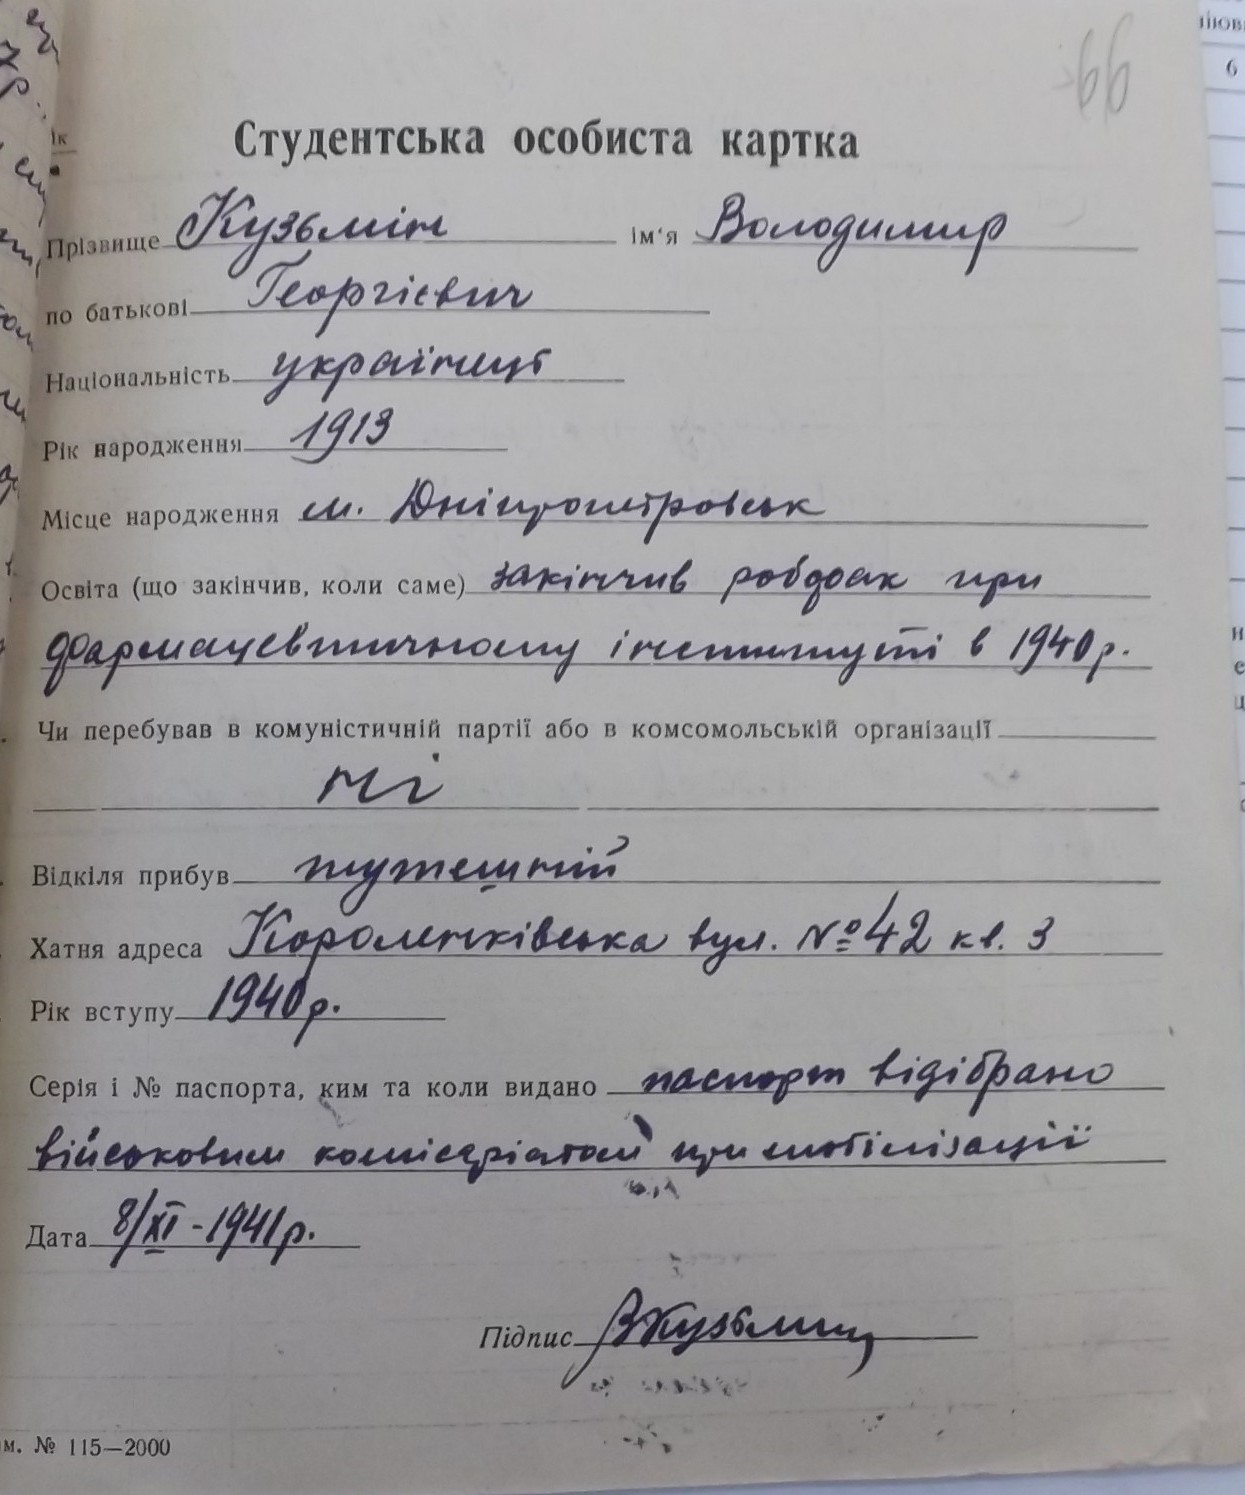 66
Студентська особиста картка
Прізвище Кузьмін ім'я Володимир
по батькові Георгієвич
Національність українець
Рік народження 1913
Місце народження м. Дніпропетровськ
Освіта (що закінчив, коли саме) закінчив робфак при
фармацевтичному інституті в 1940 р.
Чи перебував в комуністичній партії або в комсомольській організації
ні
Відкіля прибув тутешній
Хатня адреса Короленківська вул. № 42 кв. 3
Рік вступу 1940 р.
Серія і № паспорта, ким та коли видано паспорт відібрано
військовим комісаріатом при мобілізації
Дата 8/XI - 1941 р.
Підпис ВКузьмин
м. № 115—2000